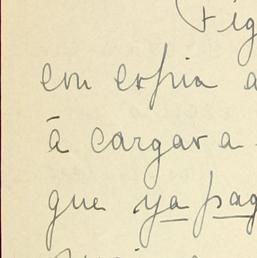 Fig
con copia a
á cargar a
que ya pag